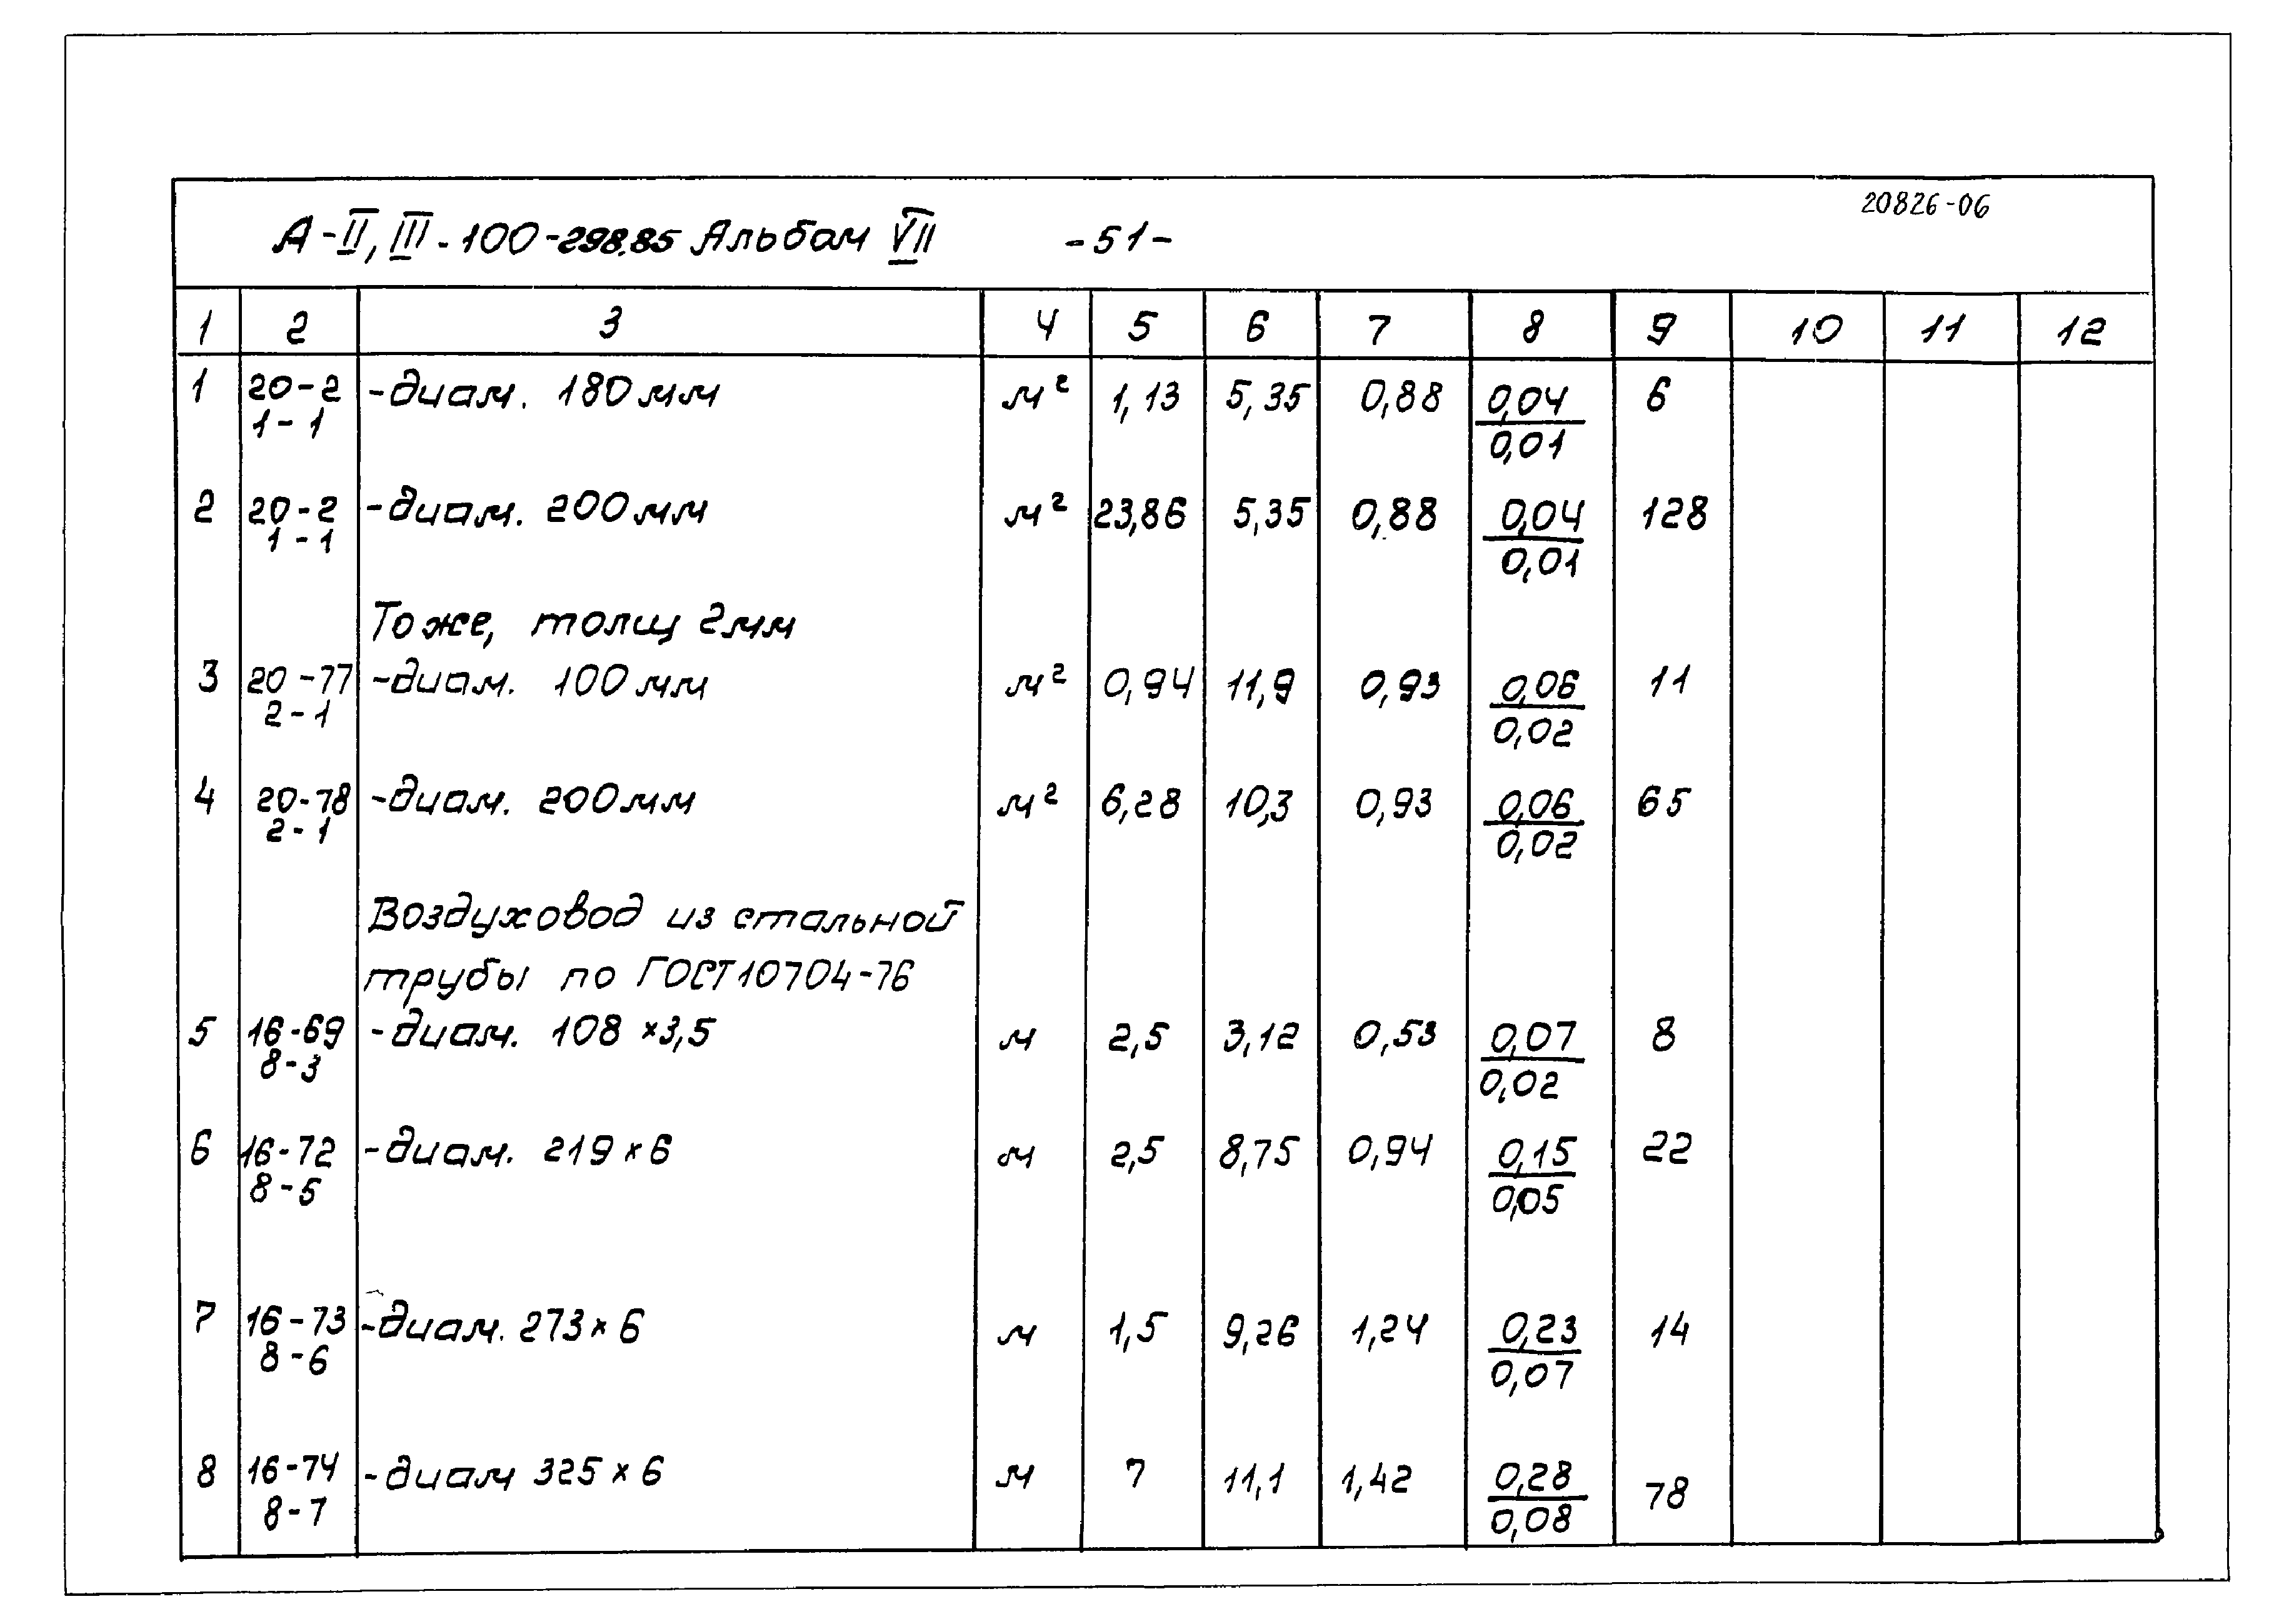 20826-06
А-II, III-100-298.85 Альбом VII -51-
1 2 3 4 5 6 7 8 9 10 11 12
1 20-2 -диам. 180 мм м² 1,13 5,35 0,88 0,04 6
1-1 0,01
2 20-2 -диам. 200 мм м² 23,86 5,35 0,88 0,04 128
1-1 0,01
Тоже, толщ 2мм
3 20-77 -диам. 100 мм м² 0,94 11,9 0,93 0,06 11
2-1 0,02
4 20-78 -диам. 200мм м² 6,28 10,3 0,93 0,06 65
2-1 0,02
Воздуховод из стальной
трубы по ГОСТ10704-76
5 16-69 -диам. 108 ×3,5 м 2,5 3,12 0,53 0,07 8
8-3 0,02
6 16-72 -диам. 219×6 м 2,5 8,75 0,94 0,15 22
8-5 0,05
7 16-73 -диам. 273×6 м 1,5 9,26 1,24 0,23 14
8-6 0,07
8 16-74 -диам 325×6 м 7 11,1 1,42 0,28 78
8-7 0,08